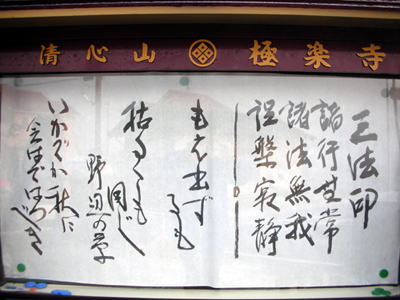 清心山 極楽寺
三法印
諸行無常
諸法無我
涅槃寂静
もえ出ずるも
枯るゝも同じ
野辺の草
いづれか秋に
会はではつべき